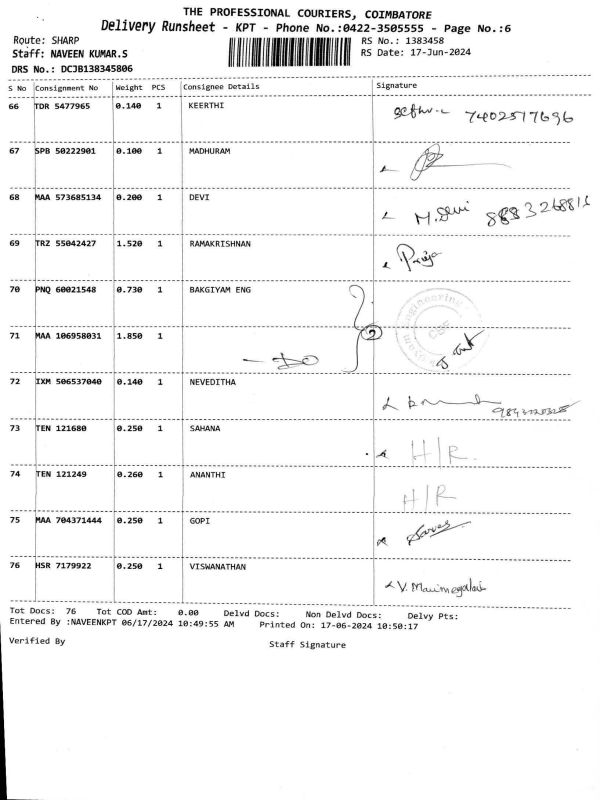 THE PROFESSIONAL COURIERS, COIMBATORE
Delivery Runsheet - KPT - Phone No.:0422-3505555 - Page No.:6
Route: SHARP
RS No.: 1383458
Staff: NAVEEN KUMAR.S
RS Date: 17-Jun-2024
DRS No.: DCJB138345806
S No Consignment No Weight PCS Consignee Details Signature
66 TDR 5477965 0.140 1 KEERTHI 7402517696
67 SPB 50222901 0.100 1 MADHURAM
68 MAA 573685134 0.200 1 DEVI M. Devi
69 TRZ 55042427 1.520 1 RAMAKRISHNAN
70 PNQ 60021548 0.730 1 BAKGIYAM ENG
71 MAA 106958031 1.850 1 - DO 2
72 IXM 506537040 0.140 1 NEVEDITHA
73 TEN 121680 0.250 1 SAHANA H/R.
74 TEN 121249 0.260 1 ANANTHI H/R
75 MAA 704371444 0.250 1 GOPI
76 HSR 7179922 0.250 1 VISWANATHAN V. Manimegalai
Tot Docs: 76 Tot COD Amt: 0.00 Delvd Docs: Non Delvd Docs: Delvy Pts:
Entered By :NAVEENKPT 06/17/2024 10:49:55 AM Printed On: 17-06-2024 10:50:17
Verified By Staff Signature